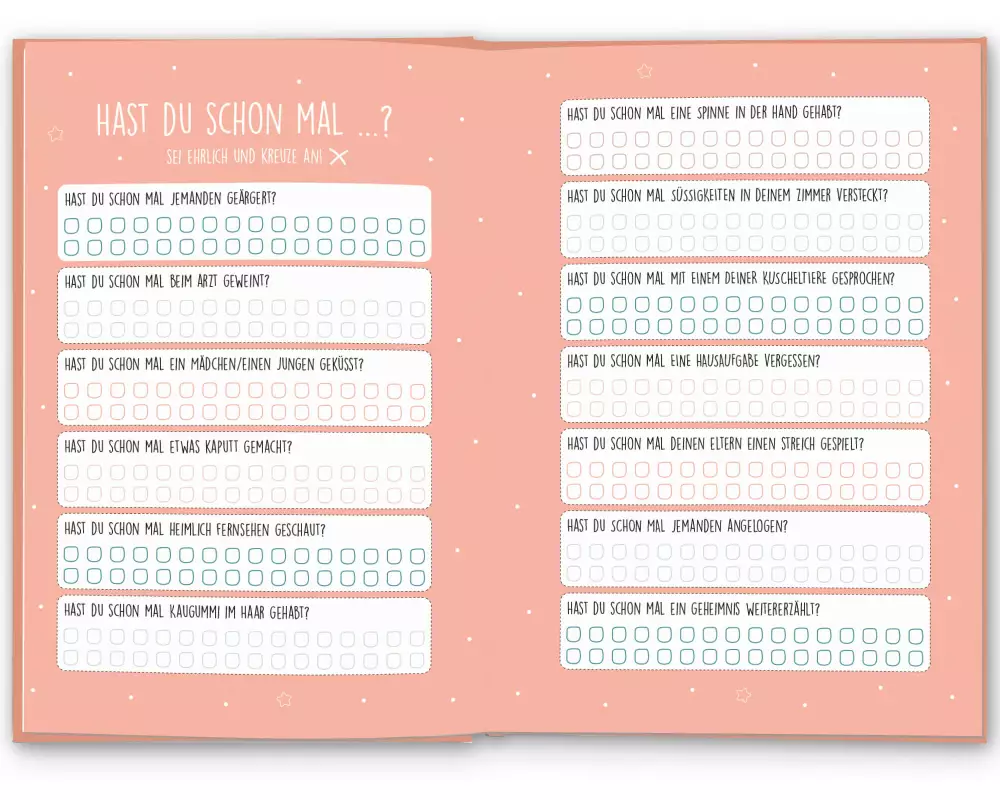 HAST DU SCHON MAL ...?
SEI EHRLICH UND KREUZE AN!
HAST DU SCHON MAL JEMANDEN GEÄRGERT?
HAST DU SCHON MAL BEIM ARZT GEWEINT?
HAST DU SCHON MAL EIN MÄDCHEN/EINEN JUNGEN GEKÜSST?
HAST DU SCHON MAL ETWAS KAPUTT GEMACHT?
HAST DU SCHON MAL HEIMLICH FERNSEHEN GESCHAUT?
HAST DU SCHON MAL KAUGUMMI IM HAAR GEHABT?
HAST DU SCHON MAL EINE SPINNE IN DER HAND GEHABT?
HAST DU SCHON MAL SÜSSIGKEITEN IN DEINEM ZIMMER VERSTECKT?
HAST DU SCHON MAL MIT EINEM DEINER KUSCHELTIERE GESPROCHEN?
HAST DU SCHON MAL EINE HAUSAUFGABE VERGESSEN?
HAST DU SCHON MAL DEINEN ELTERN EINEN STREICH GESPIELT?
HAST DU SCHON MAL JEMANDEN ANGELOGEN?
HAST DU SCHON MAL EIN GEHEIMNIS WEITERERZÄHLT?